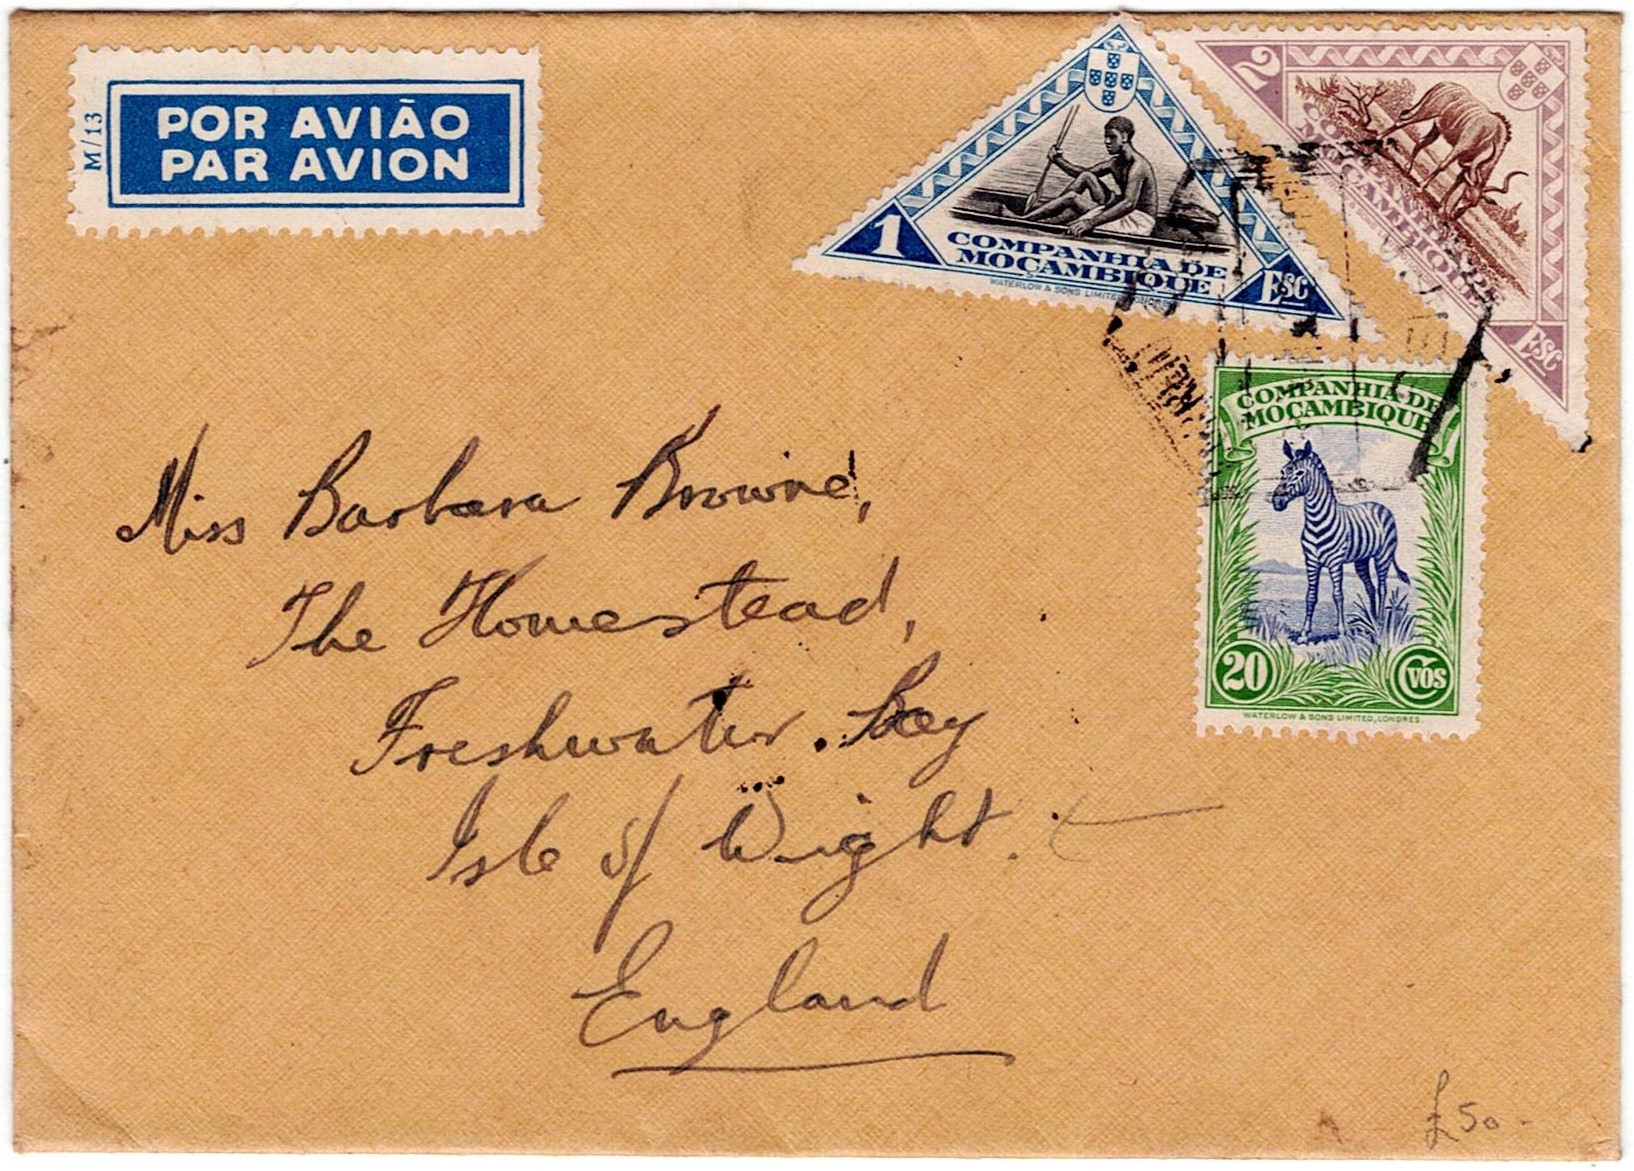 M/13
POR AVIÃO
PAR AVION
1
COMPANHIA DE
MOÇAMBIQUE
ESC
WATERLOW & SONS LIMITED, LONDRES.
2
COMPANHIA DE
MOÇAMBIQUE
ESC
COMPANHIA DE
MOÇAMBIQUE
20
CVOS
WATERLOW & SONS LIMITED, LONDRES.
Miss Barbara Browne,
The Homestead,
Freshwater. Bay
Isle of Wight.
England
£50-